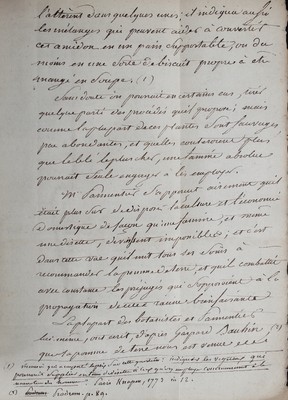 l'altèrent dans quelques unes; il indiqua aussi
les mélanges qui peuvent aider à convertir
cet amidon en un pain supportable, ou du
moins en une sorte de biscuit propre à être
mangé en soupe. (1)
Sans doute on pourrait en certains cas, tirer
quelque parti des procédés qu'il propose; mais
comme la plupart de ces plantes sont sauvages,
peu abondantes, et qu'elles couteroient plus
que le blé le plus cher, une famine absolue
pourrait seule engager à les employer.
M. Parmentier s'apperçut aisement qu'il
était plus sur de disposer la culture et l'économie
domestique de façon qu'une famine, et même
une disette, devinssent impossibles; et c'est
dans cette vue qu'il mit tous ses soins à
recommander la pomme de terre, et qu'il combattit
avec constance les préjugés qui s'opposaient à la
propagation de cette racine bienfaisante
La plupart des botanistes et Parmentier
lui-même, ont écrit, d'après Gaspard Bauhin (2)
que la pomme de terre nous est venue
(1) indiquer les végétaux qui
pourraient suppléer en tems de disette à ceux qu'on employe communément à la
nourriture des hommes? Paris Knapen, 1773 in 12.
(2) Prodrom. p. 89.